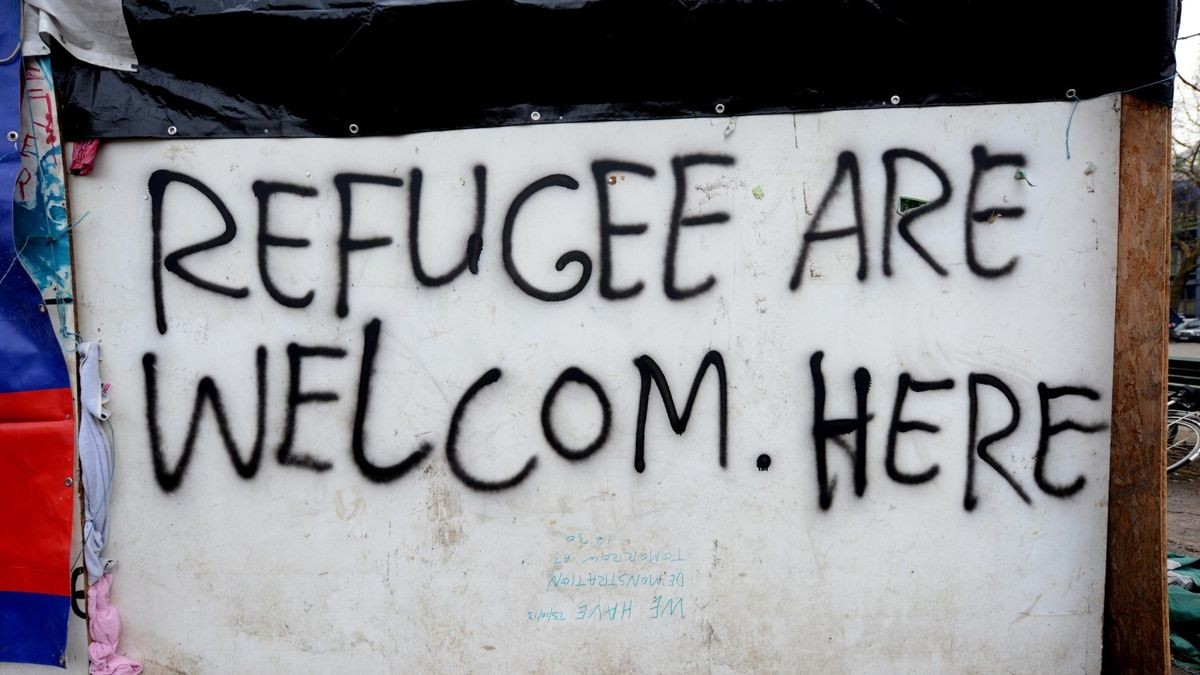 REFUGEE ARE
WELCOM. HERE
WE HAVE 23/10/13
DEMONSTRATION
TOMORROW AT
12 30